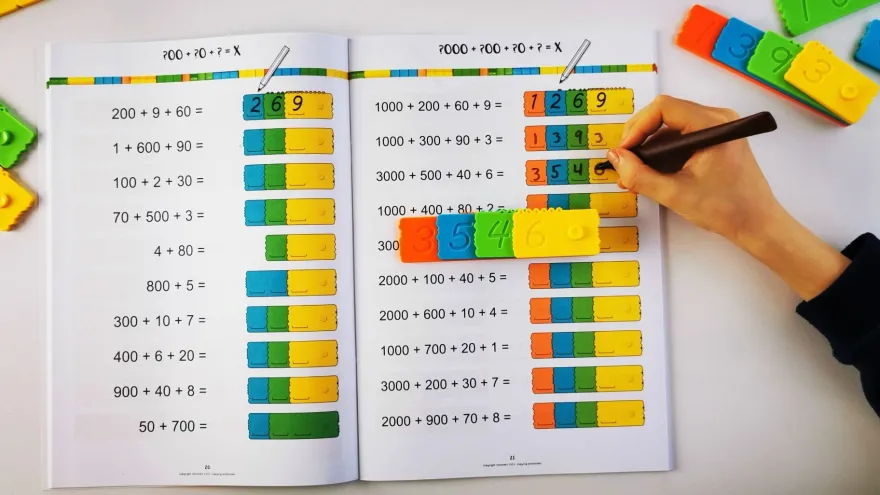 ?00 + ?0 + ? = X
200 + 9 + 60 = 269
1 + 600 + 90 =
100 + 2 + 30 =
70 + 500 + 3 =
4 + 80 =
800 + 5 =
300 + 10 + 7 =
400 + 6 + 20 =
900 + 40 + 8 =
50 + 700 =
?000 + ?00 + ?0 + ? = X
1000 + 200 + 60 + 9 = 1269
1000 + 300 + 90 + 3 = 1393
3000 + 500 + 40 + 6 = 354
1000 + 400 + 80 + 2 =
3546
2000 + 100 + 40 + 5 =
2000 + 600 + 10 + 4 =
1000 + 700 + 20 + 1 =
3000 + 200 + 30 + 7 =
2000 + 900 + 70 + 8 =